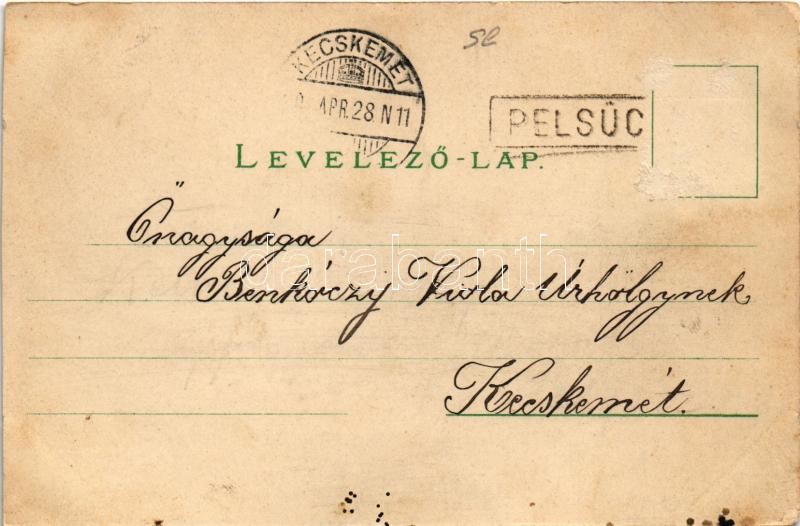 se
KECSKEMÉT
APR. 28 N 11
PELSŰC
LEVELEZŐ-LAP.
Őnagysága
Benkóczy Viola Úrhölgynek
Kecskemét.
darabanth